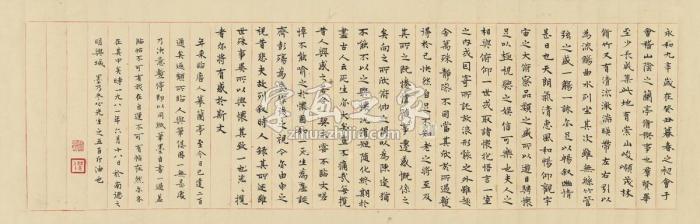 永和九年歲在癸丑暮春之初會于
會稽山陰之蘭亭脩禊事也羣賢畢
至少長咸集此地有崇山峻領茂林
脩竹又有清流激湍暎帶左右引以
為流觴曲水列坐其次雖無絲竹管
弦之盛一觴一詠亦足以暢敘幽情
是日也天朗氣清惠風和暢仰觀宇
宙之大俯察品類之盛所以遊目騁懷
足以極視聽之娛信可樂也夫人之
相與俯仰一世或取諸懷抱悟言一室
之內或因寄所託放浪形骸之外雖趣
舍萬殊靜躁不同當其欣於所遇暫
得於己怏然自足不知老之將至及
其所之既惓情隨事遷感慨係之
矣向之所欣俛仰之間以為陳迹猶
不能不以之興懷況脩短隨化終期於
盡古人云死生亦大矣豈不痛哉每攬
昔人興感之由若合一契未嘗不臨文嗟
悼不能喻之於懷固知一死生為虛誕
齊彭殤為妄作後之視今亦由今之
視昔悲夫故列敘時人錄其所述雖
世殊事異所以興懷其致一也後之攬
者亦將有感於斯文
年來臨唐人摹蘭亭至今日已達二百
通矣
臨帖不可有我在自運不可有帖在然亦
在其中矣時一九八一年六月十八日於南德之
明興城之五百斤油也